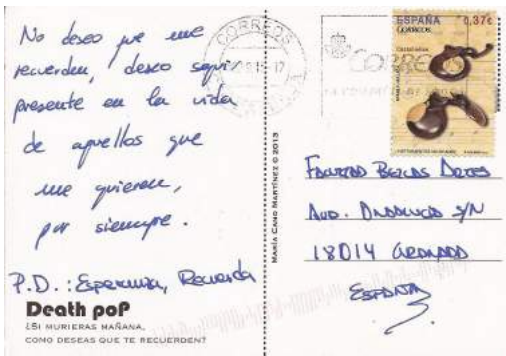 No deseo que me
recuerden, deseo seguir
presente en la vida
de aquellos que
me quieren,
por siempre.
P.D.: Esperanza, Recuerda
Death pop
¿SI MURIERAS MAÑANA,
COMO DESEAS QUE TE RECUERDEN?
MARÍA CANO MARTÍNEZ © 2013
CORREOS
ESPAÑA 0,37€
CORREOS
Castañuelas
CORREOS
FACULTAD BELLAS ARTES
AVD. ANDALUCÍA S/N
18014 GRANADA
ESPAÑA